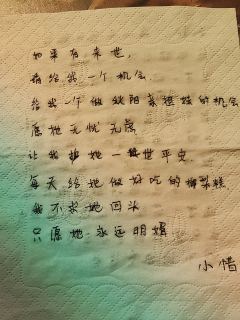 如果有来世
给我一个机会
给我一个做 的机会
愿她无忧无虑
让我护她一世平安
每天给她做好吃的 糕
我不求她回头
只愿她永远明媚
小惜